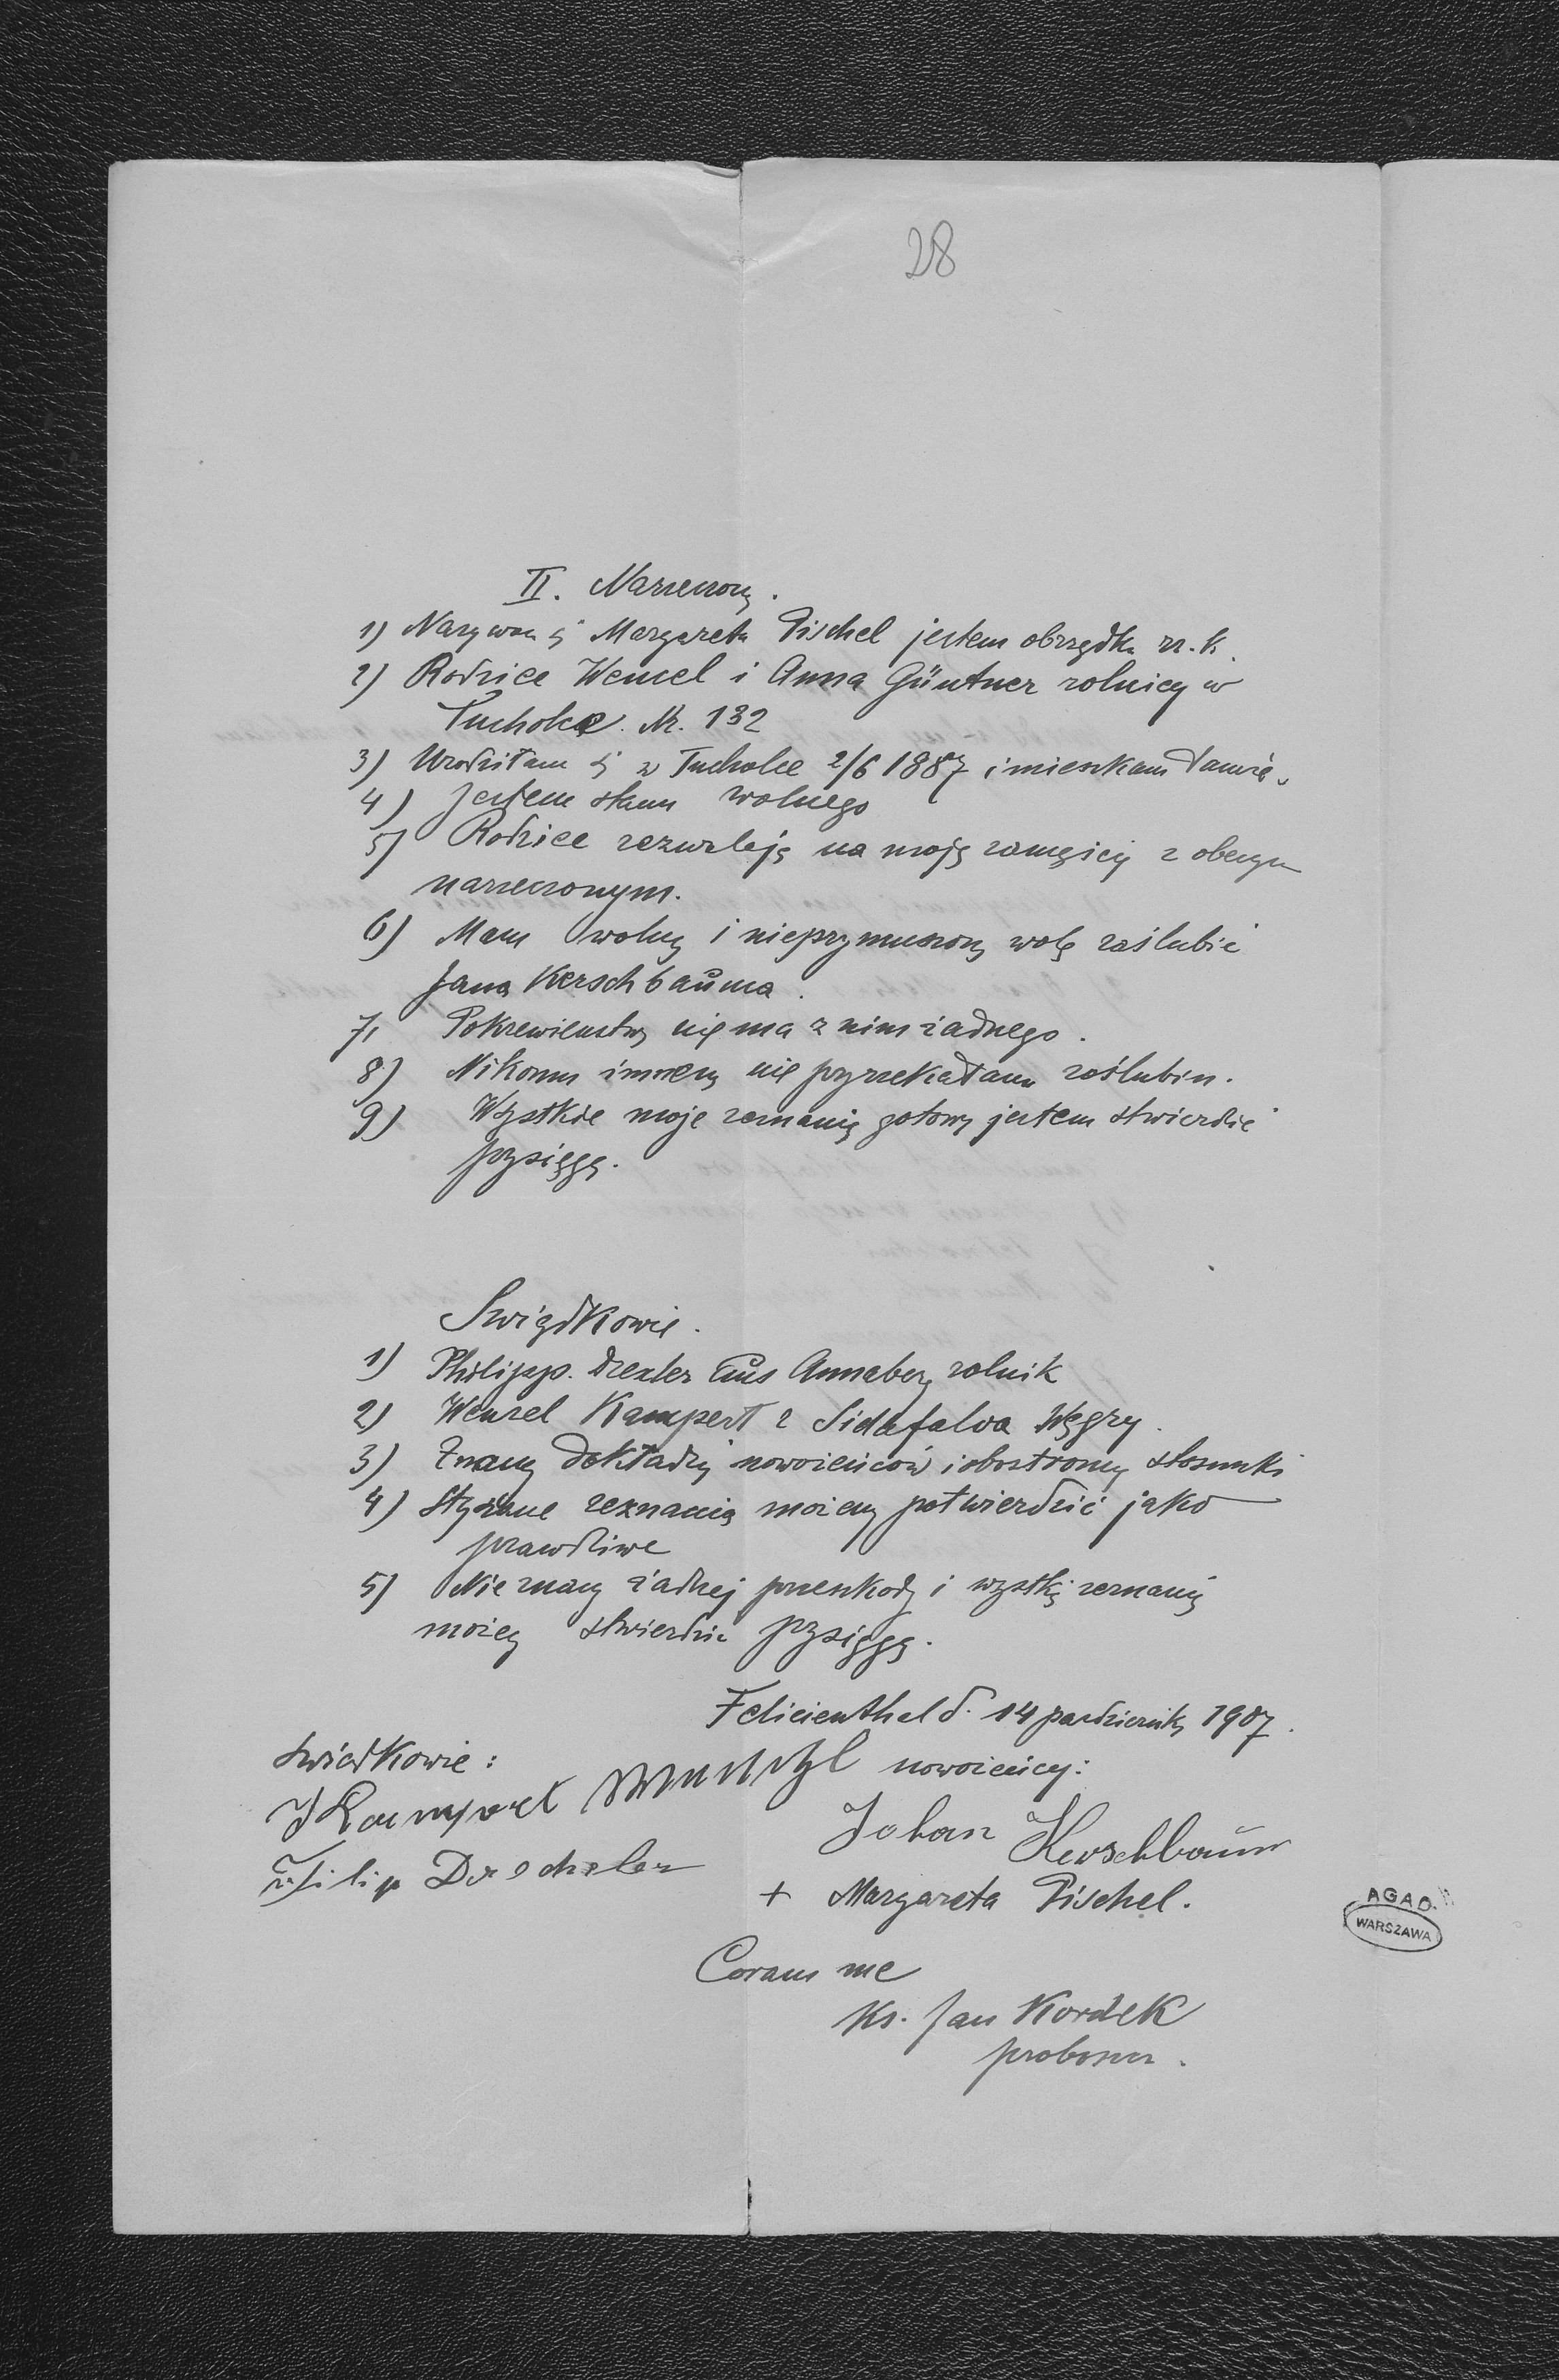 28
II. Narzeczona.
1) Nazywam się Margareta Pischel jestem obrządku rz. k.
2) Rodzice Wenzel i Anna Güntner rolnicy w
Tucholce. Nr. 132
3) Urodziłam się w Tucholce 2/6 1887 i mieszkam tamże.
4) Jestem stanu wolnego
5) Rodzice zezwalają na moje zamęście z obecnym
narzeczonym.
6) Mam wolną i nieprzymuszoną wolę zaślubić
Jana Kerschbauma.
7) Pokrewieństwa nie ma z nim żadnego.
8) Nikomu innemu nie przyrzekałam zaślubin.
9) Wszystkie moje zeznania gotową jestem stwierdzić
przysięgą.
Świadkowie.
1) Philipp. Drexler aus Annaberg rolnik
2) Wenzel Kampert z Sidafalva Węgry.
3) Znamy dokładnie nowożeńców i obostronny stosunki
4) Słyszane zeznania możemy potwierdzić jako
prawdziwe
5) Nie znamy żadnej przeszkody i wszystkie zeznania
możemy stwierdzić przysięgą.
Felicienthal d. 14 października 1907.
świadkowie:
nowożeńcy:
Kampert
Johan Kerschbaum
Filip Drechsler
+ Margareta Pischel.
Coram me
Ks. Jan Kordek
proboszcz.
AGAD.
WARSZAWA